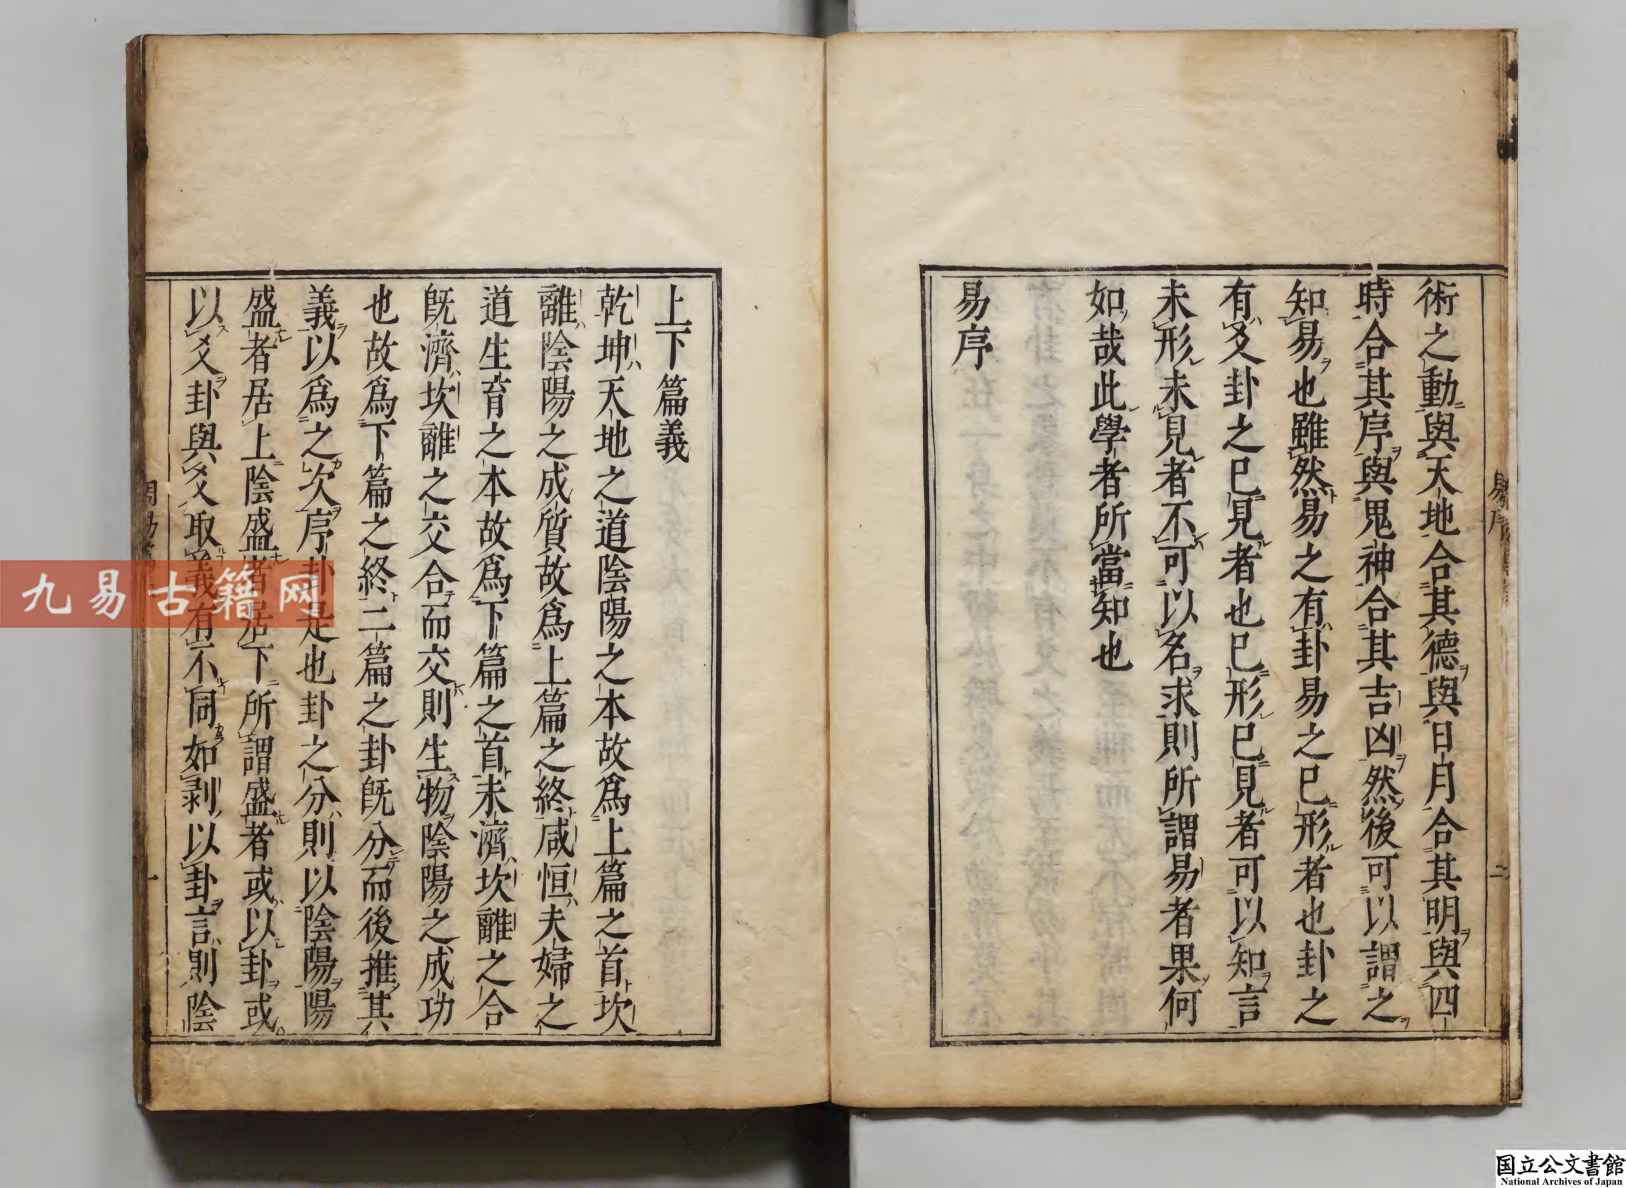 術之動與天地合其德與日月合其明與四
時合其序與鬼神合其吉凶然後可以謂之
知易也雖然易之有卦易之已形者也卦之
有爻卦之已見者也已形已見者可以知言
未形未見者不可以名求則所謂易者果何
如哉此學者所當知也
易序
上下篇義
乾坤天地之道陰陽之本故爲上篇之首坎
離陰陽之成質故爲上篇之終咸恒夫婦之
道生育之本故爲下篇之首未濟坎離之合
旣濟坎離之交合而交則生物陰陽之成功
也故爲下篇之終二篇之卦旣分而後推其
義以爲之次序卦是也卦之分則以陰陽陽
盛者居上陰盛者居下所謂盛者或以卦或
以爻卦與爻取義有不同如剥以卦言則陰
易序
二
一
九易古籍网
国立公文書館
National Archives of Japan